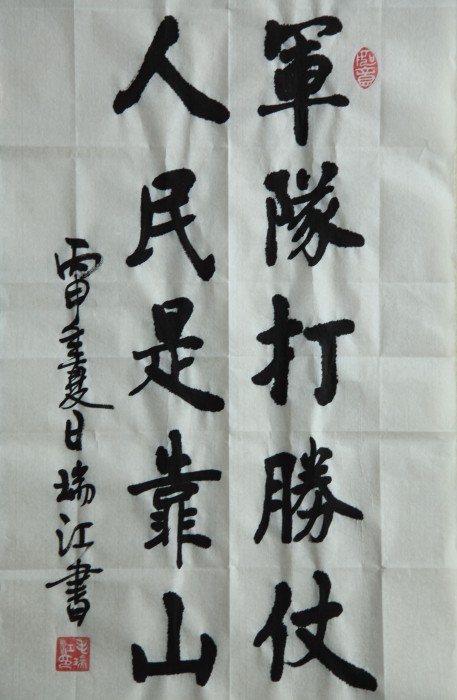 軍隊打勝仗
人民是靠山
丙申夏日瑞江書